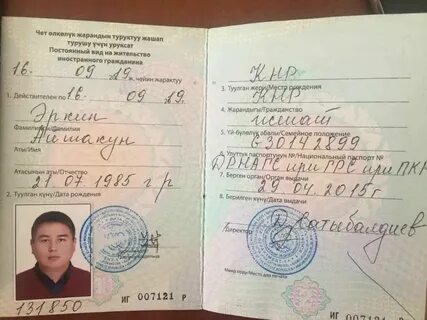 Чет өлкөлүк жарандын туруктуу жашап
турушу үчүн уруксат
Постоянный вид на жительство
иностранного гражданина
16. 09. 19ж. чейин жарактуу
1. Действителен по 16 09 19г.
Эркин
Фамилиясы/Фамилия
Айшакун
Аты/Имя
Атасынын аты/Отчество
21 07 1985 г р
2. Туулган күнү/Дата рождения
131850
ИГ 007121 Р
КНР
3. Туулган жери/Место рождения
КНР
4. Жарандыгы/Гражданство
5. Үй-бүлөлүк абалы/Семейное положение
G30142899
6. Улуттук паспортунун №/Национальный паспорт №
ДРНАГС при ГРС при ПКР
7. Берген орган/Орган выдачи
29.04.2015г
8. Берилген күнү/Дата выдачи
Мөөр орду/Место для печати
ИГ 007121 Р